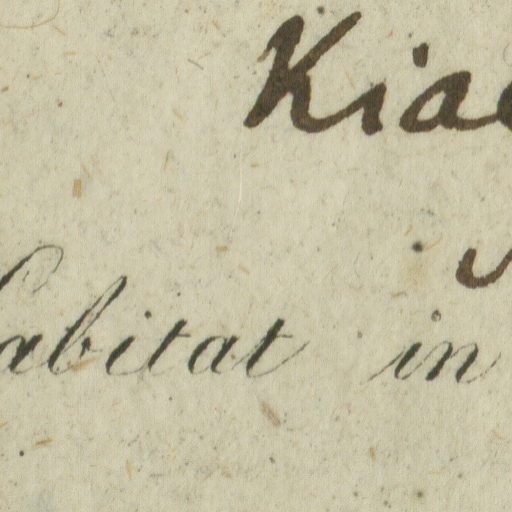 Kia
abitat in